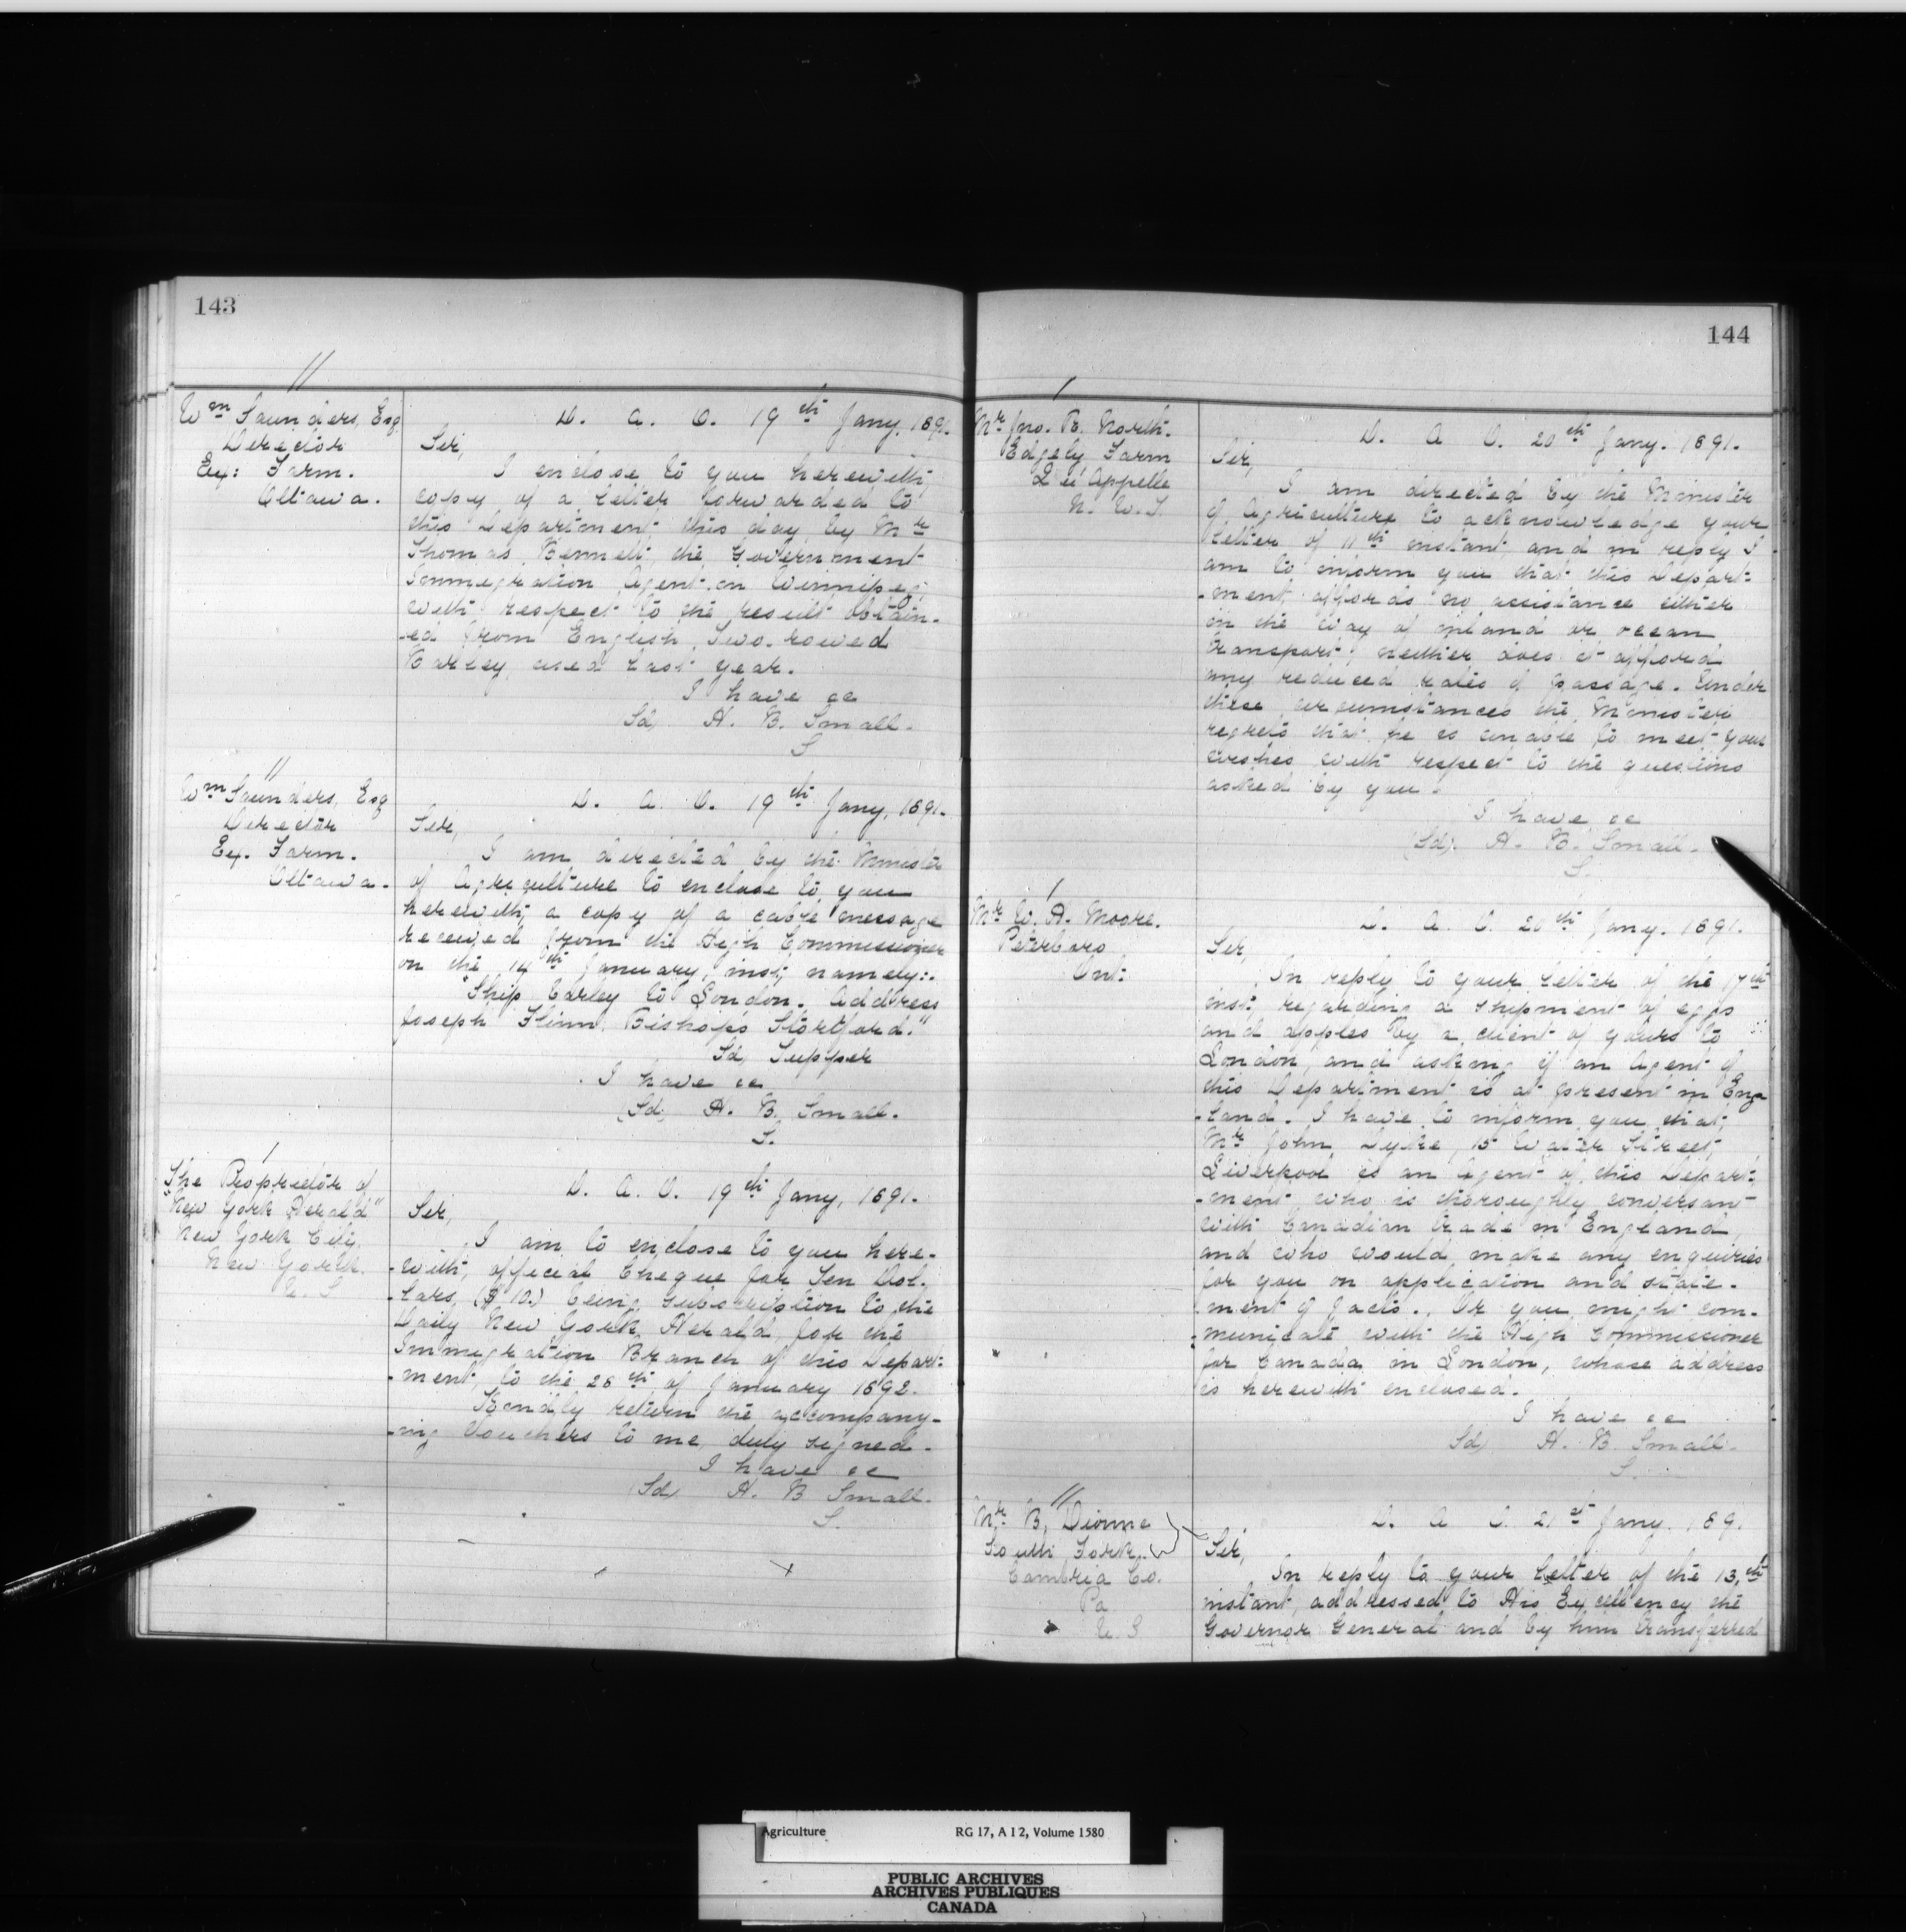 143
Wm Saunders, Esq
Director
Ex: Farm.
Ottawa.
D. A. O. 19th Jany. 1891.
Sir,
I enclose to you herewith,
copy of a letter forwarded to
this Department this day by Mr
Thomas Bennett, the Government
Immigration Agent in Winnipeg,
with respect to the result obtain-
-ed from English Two-rowed
Barley used last year.
I have &c
Sd, H. B. Small.
S
Wm Saunders, Esq
Director
Ex. Farm.
Ottawa.
D. A. O. 19th Jany, 1891.
Sir,
I am directed by the Minister
of Agriculture to enclose to you
herewith, a copy of a cable message
received from the High Commissioner
on the 14th January, inst, namely:-
"Ship barley to London. Address
Joseph Flinn, Bishops Stortford."
Sd, Tupper
I have &c
(Sd) H. B. Small.
S.
The Proprietor of
"New York Herald"
New York City,
New York.
U. S
D. A. O. 19th Jany, 1891.
Sir,
I am to enclose to you here-
-with, official Cheque for Ten Dol-
-lars, ($ 10.) being subscription to the
Daily New York Herald, for the
Immigration Branch of this Depart-
-ment, to the 26th of January 1892.
Kindly return the accompany-
-ing Vouchers to me, duly signed.
I have &c
(Sd) H. B Small.
S.
144
Mr Jno. B. North.
Edgely Farm
Qu'Appelle
N. W. T.
D. A O. 20th Jany. 1891.
Sir,
I am directed by the Minister
of Agriculture to acknowledge your
letter of 11th instant, and in reply I
am to inform you that this Depart-
-ment affords no assistance either
in the way of inland or ocean
transport; neither does it afford
any reduced rates of passage. Under
these circumstances the Minister
regrets that he is unable to meet your
wishes with respect to the questions
asked by you.
I have &c
(Sd) H. B. Small.
S.
Mr W. A. Moore.
Peterboro
Ont:
D. A. O. 20th Jany. 1891.
Sir,
In reply to your letter of the 17th
inst: regarding a shipment of eggs
and apples by a client of yours to
London, and asking if an Agent of
this Department is at present in Eng-
-land. I have to inform you that,
Mr John Dyke, 15 Water Street,
Liverpool is an Agent of this Depart-
-ment who is thoroughly conversant
with Canadian trade in England,
and who would make any enquiries
for you on application and state-
-ment of facts. Or you might com-
-municate with the High Commissioner
for Canada in London, whose address
is herewith enclosed.
I have &c
Sd, H. B. Small.
S.
Mr. B. Dionne
South Fork.
Cambria Co.
Pa
U. S
D. A O. 21st Jany. 189.
Sir,
In reply to your letter of the 13th
instant, addressed to His Excellency the
Governor General and by him transferred
Agriculture RG 17, A I 2, Volume 1580
PUBLIC ARCHIVES
ARCHIVES PUBLIQUES
CANADA